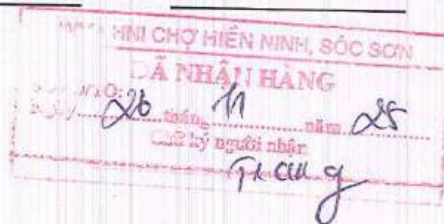 HNI CHỢ HIỀN NINH, SÓC SƠN
ĐÃ NHẬN HÀNG
26 tháng 11 năm 25
Chữ ký người nhận
Trang